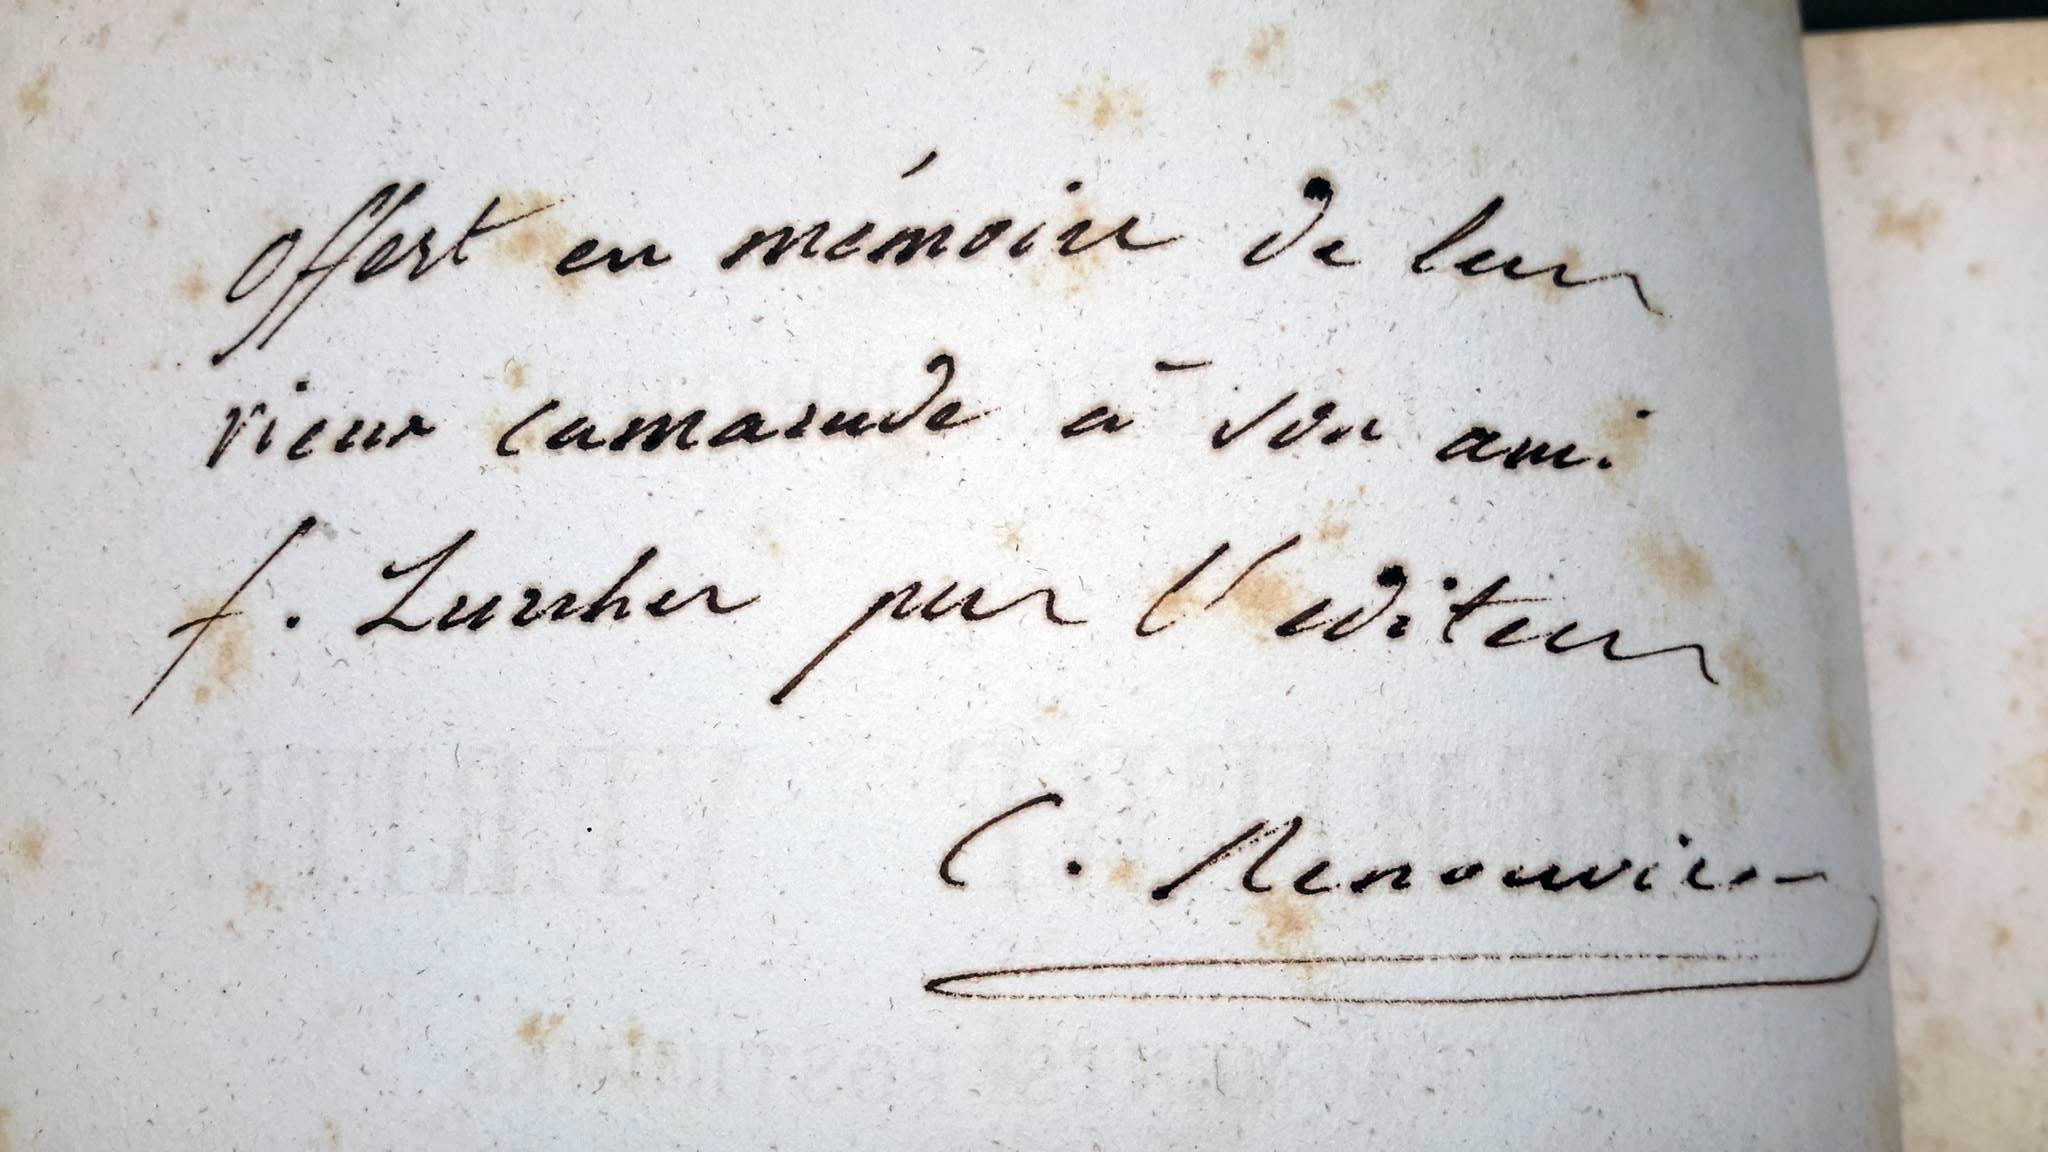 offert en mémoire de leur
vieux camarade à son ami
f. Zurcher par l'editeur
C. Renouvier